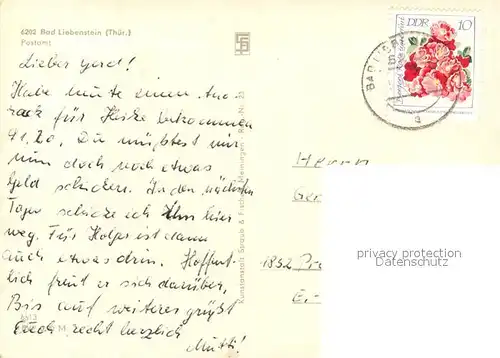 6202 Bad Liebenstein (Thür.)
Postamt
Lieber Gerd!
Habe heute einen Ano-
rack für Heike bekommen
91,20. Du müßtest mir
nun doch noch etwas
Geld schicken. In den nächsten
Tagen schicke ich ihn hier
weg. Für Holger ist dann
auch etwas drin. Hoffent-
lich freut er sich darüber,
Bis auf weiteres grüßt
Euch recht herzlich
Mutti!
Kunstanstalt Straub & Fischer Meiningen
DDR 10
BAD LIEB
a
Herrn
Ger
1832
privacy protection
Datenschutz